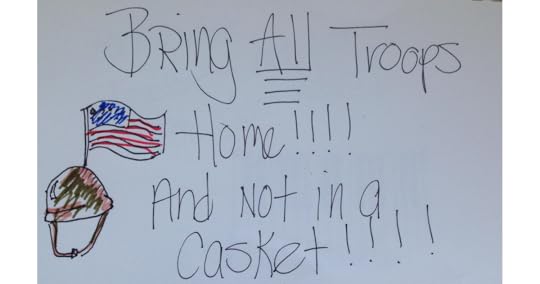 Bring All Troops
Home!!!!
And Not in a
Casket!!!!